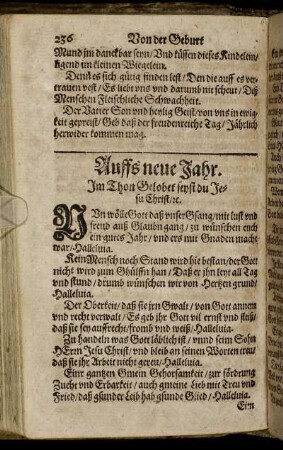 256 Von der Geburt
Mund jm danckbar seyn / Vnd küssen dieses Kindelein /
ligend im kleinen Wiegelein.
Denn es sich gütig finden lest / Den die auff es ver-
trauen vest / Es liebt vns vnd darumb nit scheut / Deß
Menschen Fleischliche Schwachheit.
Der Vatter Son vnd heylig Geist / von vns in ewig
keit gepreist / Geb daß der freudenreiche Tag / Jährlich
herwider kommen mag.
Auffs neue Jahr.
Im Thon Gelobet seyst du Je-
su Christ / ꝛc.
NVn wölle Gott daß vnser Gsang / mit lust vnd
freud auß Glauben gang / zu wünschen euch
ein gutes Jahr / vnd ers mit Gnaden mach
war / Halleluia.
Kein Mensch noch Stand wird hie bestan / der Gott
nicht wird zum Ghülffen han / Daß er jhn leyt all Tag
vnd stund / drumb wünschen wir von Hertzen grund /
Halleluia.
Der Oberkeit / daß sie jren Gwalt / von Gott annem
vnd recht verwalt / Es geb jhr Gott vil ernst vnd fleiß /
daß sie sey auffrecht / fromb vnd weiß / Halleluia.
Zu handeln was Gott löblich ist / vnnd seim Sohn
HErrn Jesu Christ / vnd bleib an seinen Worten treu /
daß sie jhr Arbeit nicht gereu / Halleluia.
Einr gantzen Gmein Gehorsamkeit / zur fördrung
Zucht vnd Erbarkeit / auch gmeine Lieb mit Treu vnd
Fried / daß gsunder Leib hab gsunde Glied / Halleluia.
Ein